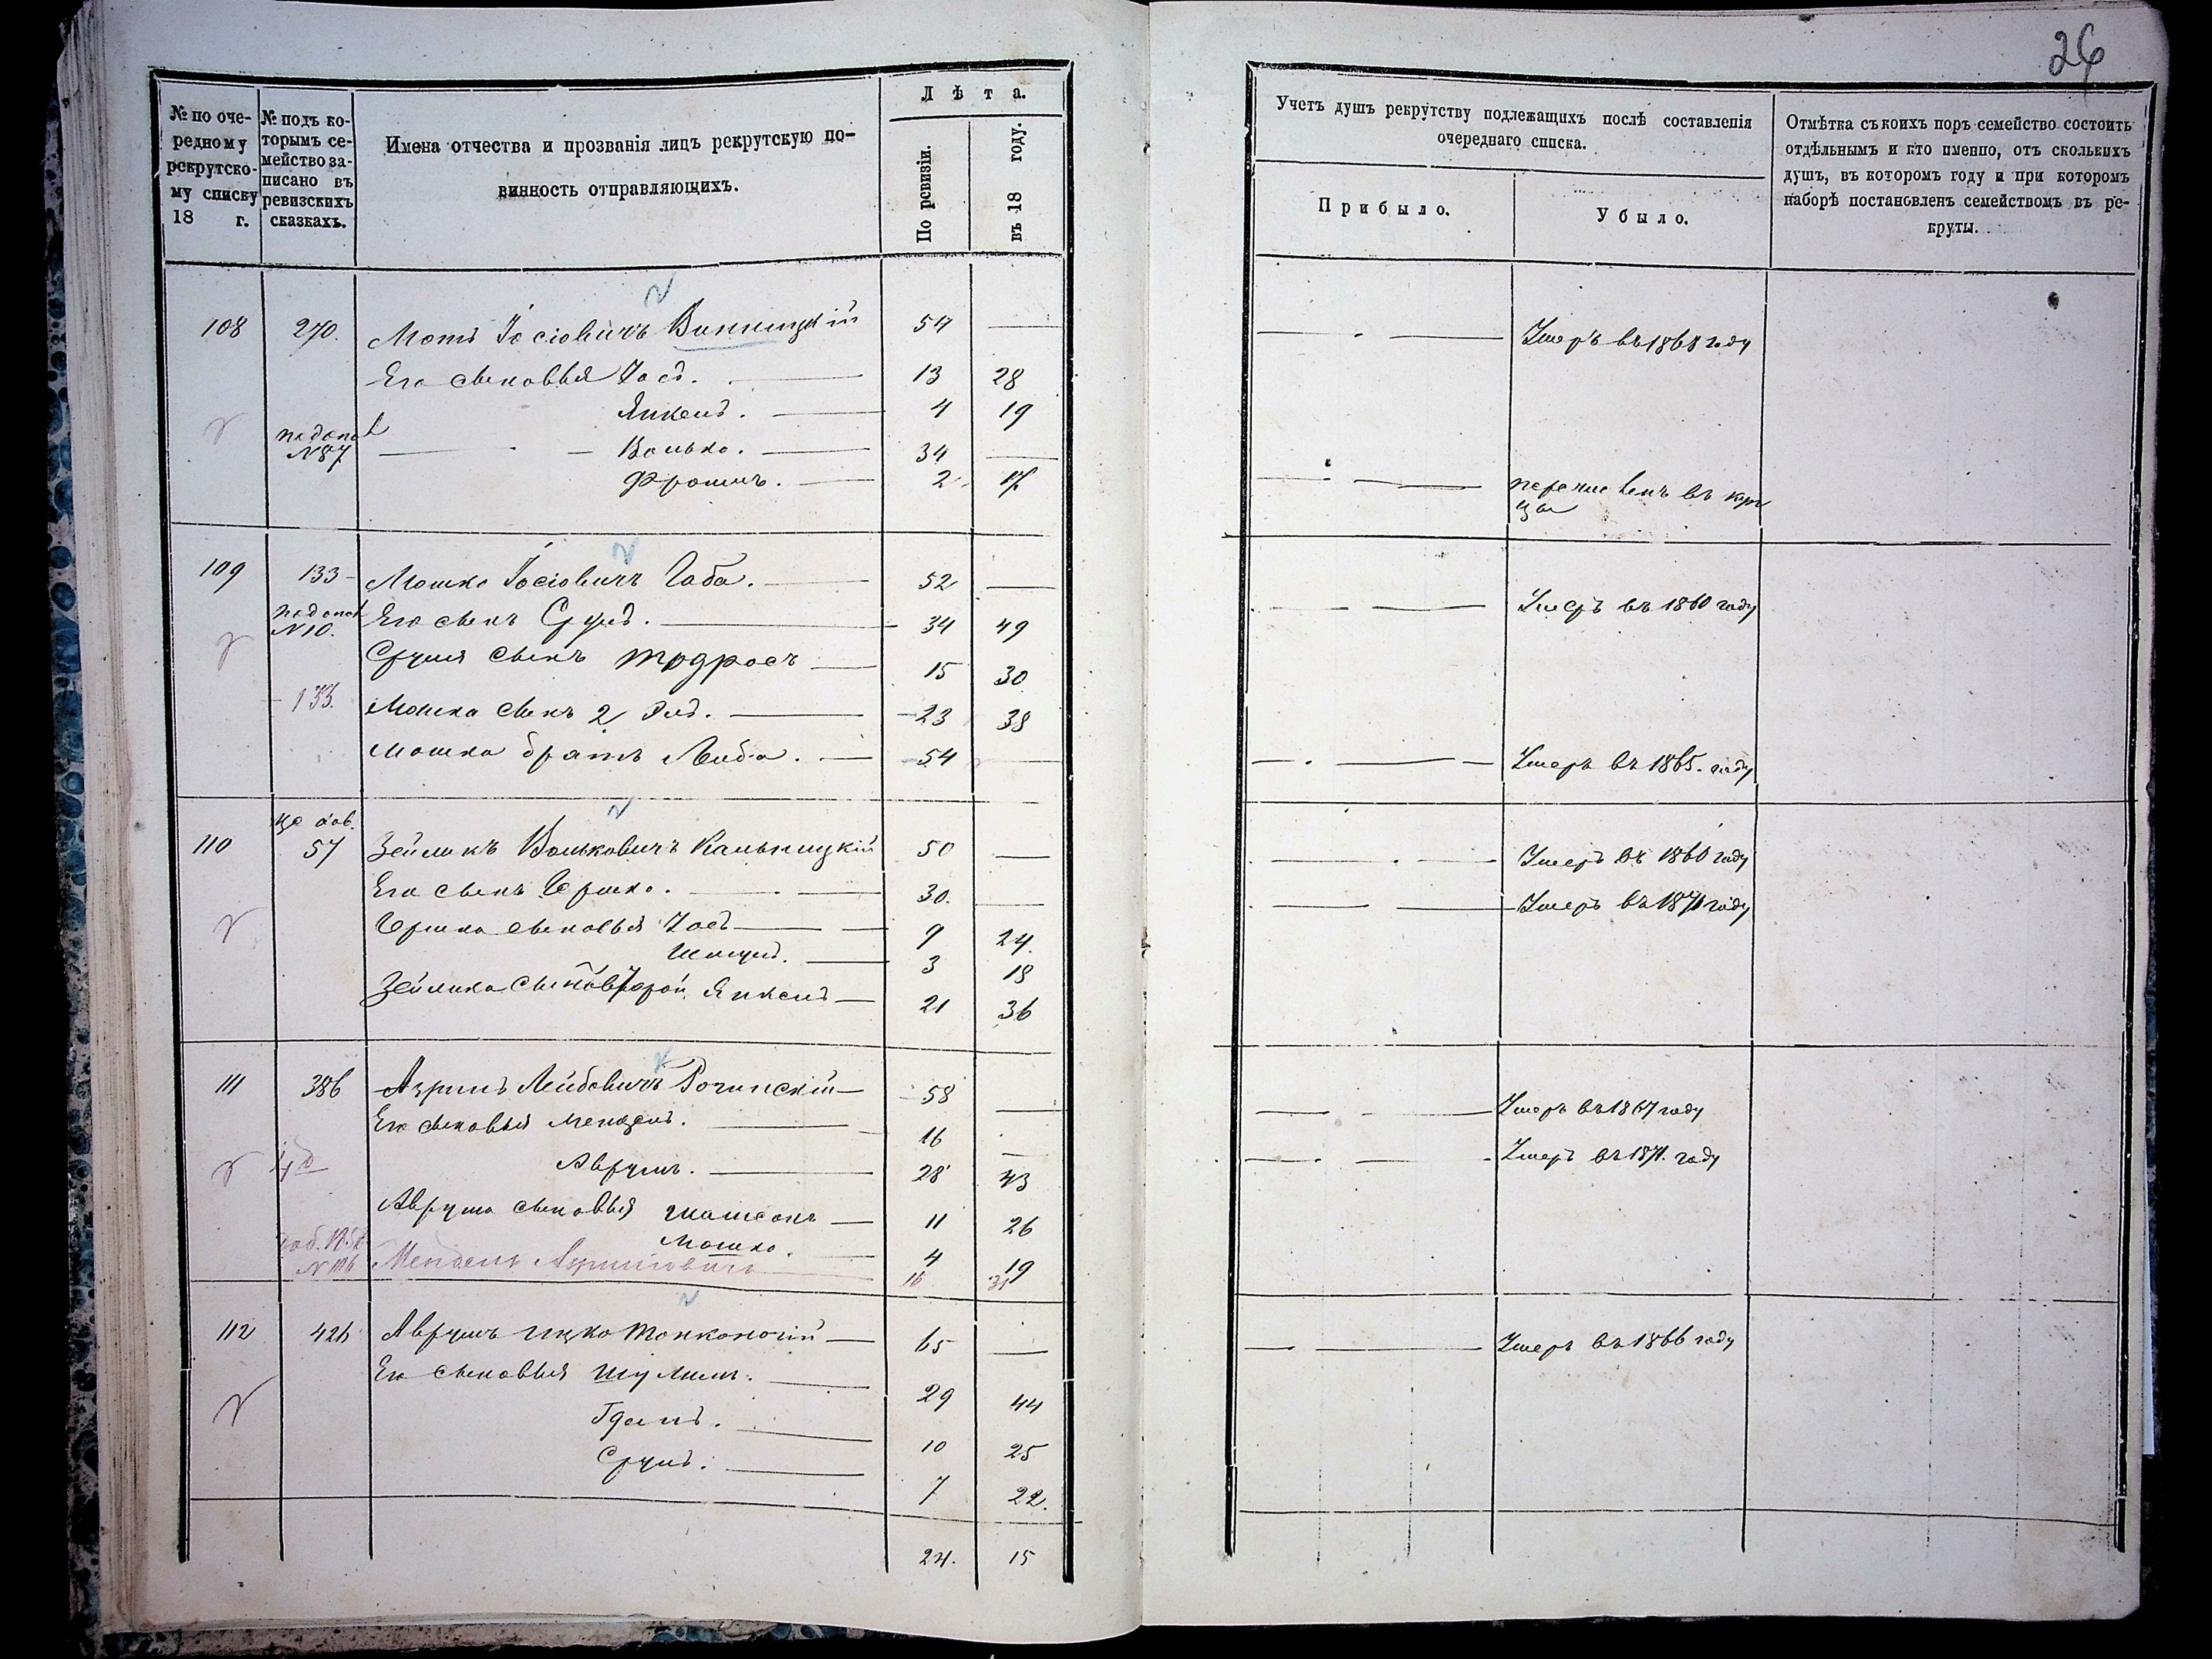 26
№ по оче-
редному
рекрутско-
му списку
18 г.
№ подъ ко-
торымъ се-
мейство за-
писано въ
ревизскихъ
сказкахъ.
Имена отчества и прозванія лицъ рекрутскую по-
винность отправляющихъ.
Лѣта.
По ревизіи.
въ 18 году.
Учетъ душъ рекрутству подлежащихъ послѣ составленія
очереднаго списка.
Прибыло.
Убыло.
Отмѣтка съ коихъ поръ семейство состоитъ
отдѣльнымъ и кто именно, отъ сколькихъ
душъ, въ которомъ году и при которомъ
наборѣ поставленъ семействомъ въ ре-
круты.
108 270. Мотъ Іосіовичъ Винницкій 54 — Умеръ въ 1868 году
Его сыновья Іось. 13 28
Янкель. 4 19
№ 87 Волько. 34 —
Фроимъ. 2 17 перечисленъ въ куп
цы
109 133 Мошко Іосіовичъ Габа. 52 — Умеръ въ 1860 году
№ 10. Его сынъ Сруль. 34 49
Сруля сынъ Тодросъ 15 30
133. Мошка сынъ 2 Эль. 23 38
Мошка братъ Лейба. 54 — Умеръ въ 1865. году
110 57 Зейликъ Вольковичъ Кальницкій 50 — Умеръ въ 1860 году
Его сынъ Гершко. 30. — Умеръ въ 1871 году
Гершка сыновья Іось 9 24.
Шмуль. 3 18
Зейлика сынъ второй Янкель 21 36
111 386 Азриль Лейбовичъ Рогинскій 58 — Умеръ въ 1867 году
Его сыновья Мендель. 16 — Умеръ въ 1871. году
Аврумъ. 28 43
Аврума сыновья Шамсонъ 11 26
Мошко. 4 19
Мендель Азрилевичъ 16 31
112 426 Аврумъ Ицко Тонконогій 65 — Умеръ въ 1866 году
Его сыновья Шулимъ. 29 44
Гдаль. 10 25
Сруль. 7 22.
24. 15